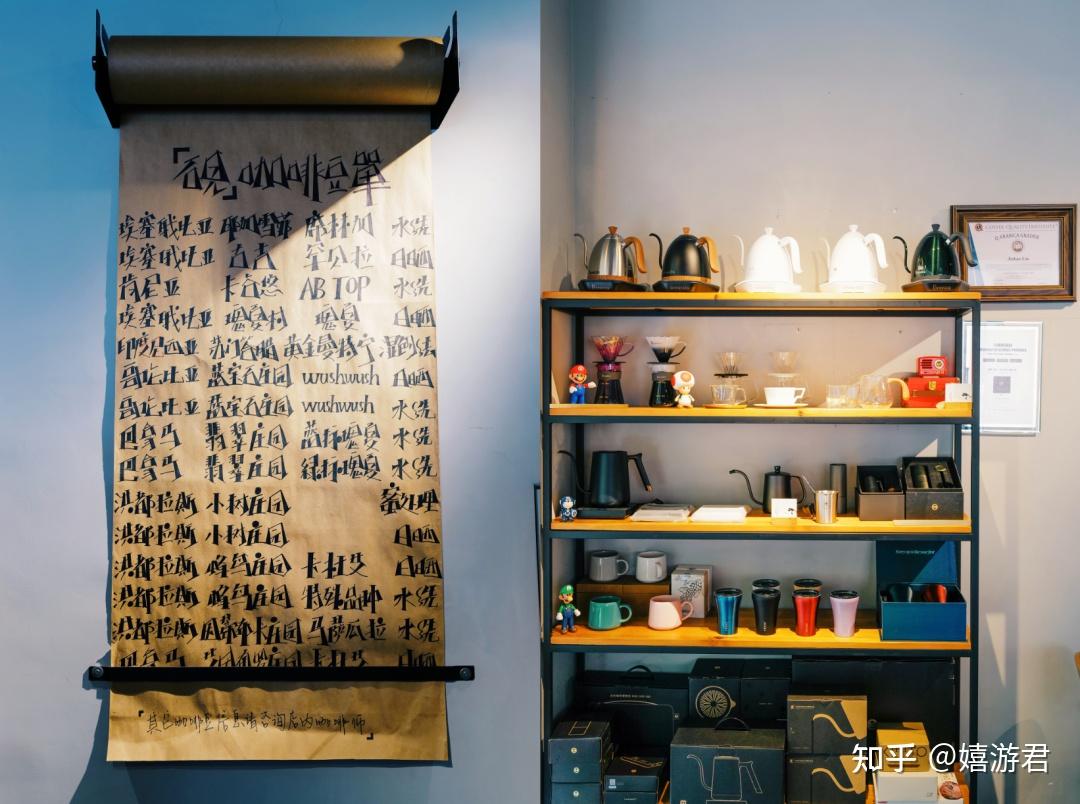 「觊」咖啡豆單
埃塞俄比亚 耶加雪菲 席林加 水洗
埃塞俄比亚 古吉 罕贝拉 日晒
肯尼亚 卡互悠 AB TOP 水洗
埃塞俄比亚 瑰夏村 瑰夏 日晒
印度尼西亚 苏门答腊 黄金曼特宁 湿刨法
哥伦比亚 蓝宝石庄园 wushwush 日晒
哥伦比亚 蓝宝石庄园 wushwush 水洗
巴拿马 翡翠庄园 蓝标瑰夏 水洗
巴拿马 翡翠庄园 绿标瑰夏 水洗
洪都拉斯 小树庄园 蜜处理
洪都拉斯 小树庄园 日晒
洪都拉斯 庄园 日晒
洪都拉斯 庄园 特殊品种 水洗
洪都拉斯 庄园 水洗
巴拿马 日晒
「其他咖啡豆信息请咨询店内咖啡师」
COFFEE QUALITY INSTITUTE
Q ARABICA GRADER
知乎 @嬉游君